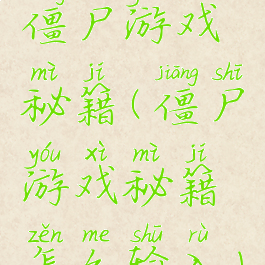 僵尸游戏
mì jí jiāng shī
秘籍(僵尸
yóu xì mì jí
游戏秘籍
zěn me shū rù
怎么输入)